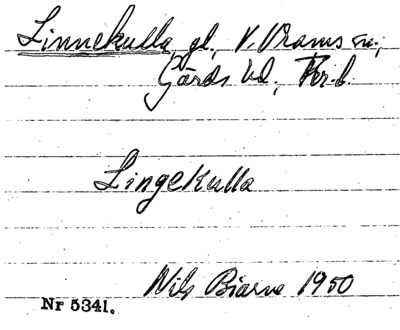 Linnekulla, gl, V. Vrams sn.,
Gärds hd, Kr. l.
Lingekulla
Nils Biarne 1950
Nr 5341.